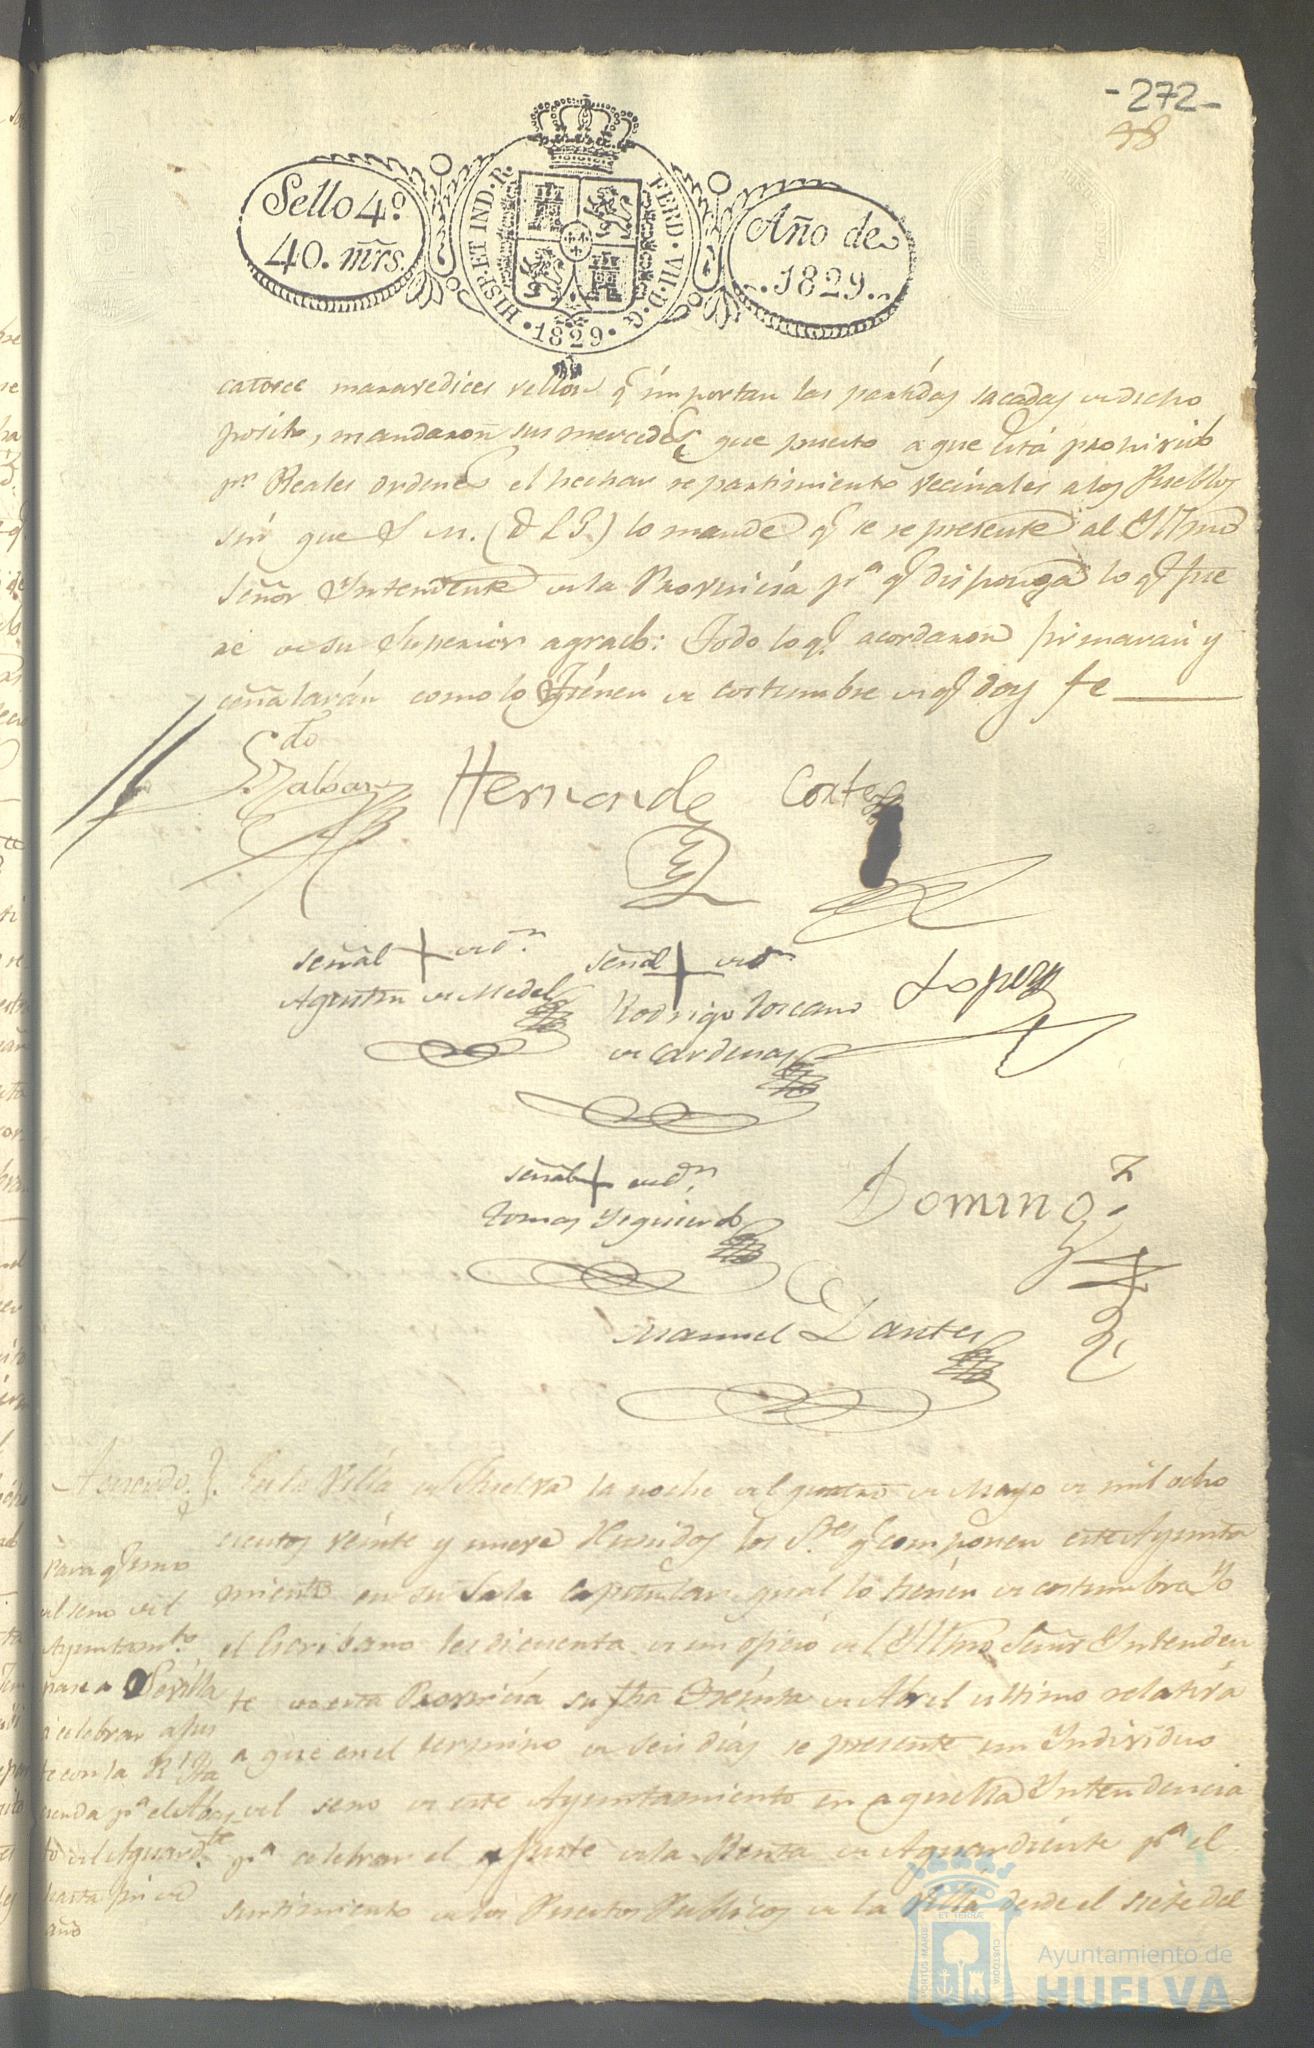 -272-
48
Sello 4º
40. mrs.
HISP. ET IND. R. FERD. VII. D. G.
1829
Año de
1829
catorce maravedices vellon q importan las partidas sacadas de dicho
posito, mandaron sus mercedes que puesto a que está prohivido
pr Reales ordenes el hechar repartimiento vecinales a los Pueblos
sin que S. M. (D L G.) lo mande q se represente al Yltmo
Señor Yntendente de la Provincia pa q disponga lo q fue
re de su Superior agrado: Todo lo q acordaron firmaran y
señalarán como lo tienen de costumbre de q doy fe
Hernande
Cortes
señal + de Dn
Agustin de Medel
señal + de Dn
Rodrigo Toscano
de Cardenas
Lopez
señal + de Dn
Tomas Yzquierdo
Domingz
Manuel
Acuerdo
Para q uno
del seno del
Ayuntamto
pase a Sevilla
a celebrar ajus
te con la Rl Ha
cienda pa el Abas
to del Aguardte
hasta fin de
año
En la Villa de Huelva la noche del quatro de Mayo de mil ocho
cientos veinte y nueve Reunidos los Sres q componen este Ayunta
miento en su Sala Capitular qual lo tienen de costumbre Yo
el Escribano les di cuenta de un oficio del Yltmo Señor Yntenden
te de esta Provincia su fha treinta de Abril ultimo relativa
a que en el termino de seis dias se presente un Yndividuo
del seno de este Ayuntamiento en aquella Yntendencia
pa celebrar el ajuste de la Renta de Aguardiente pa el
surtimiento de los Puestos Publicos de la Villa desde el siete del
Ayuntamiento de
HUELVA